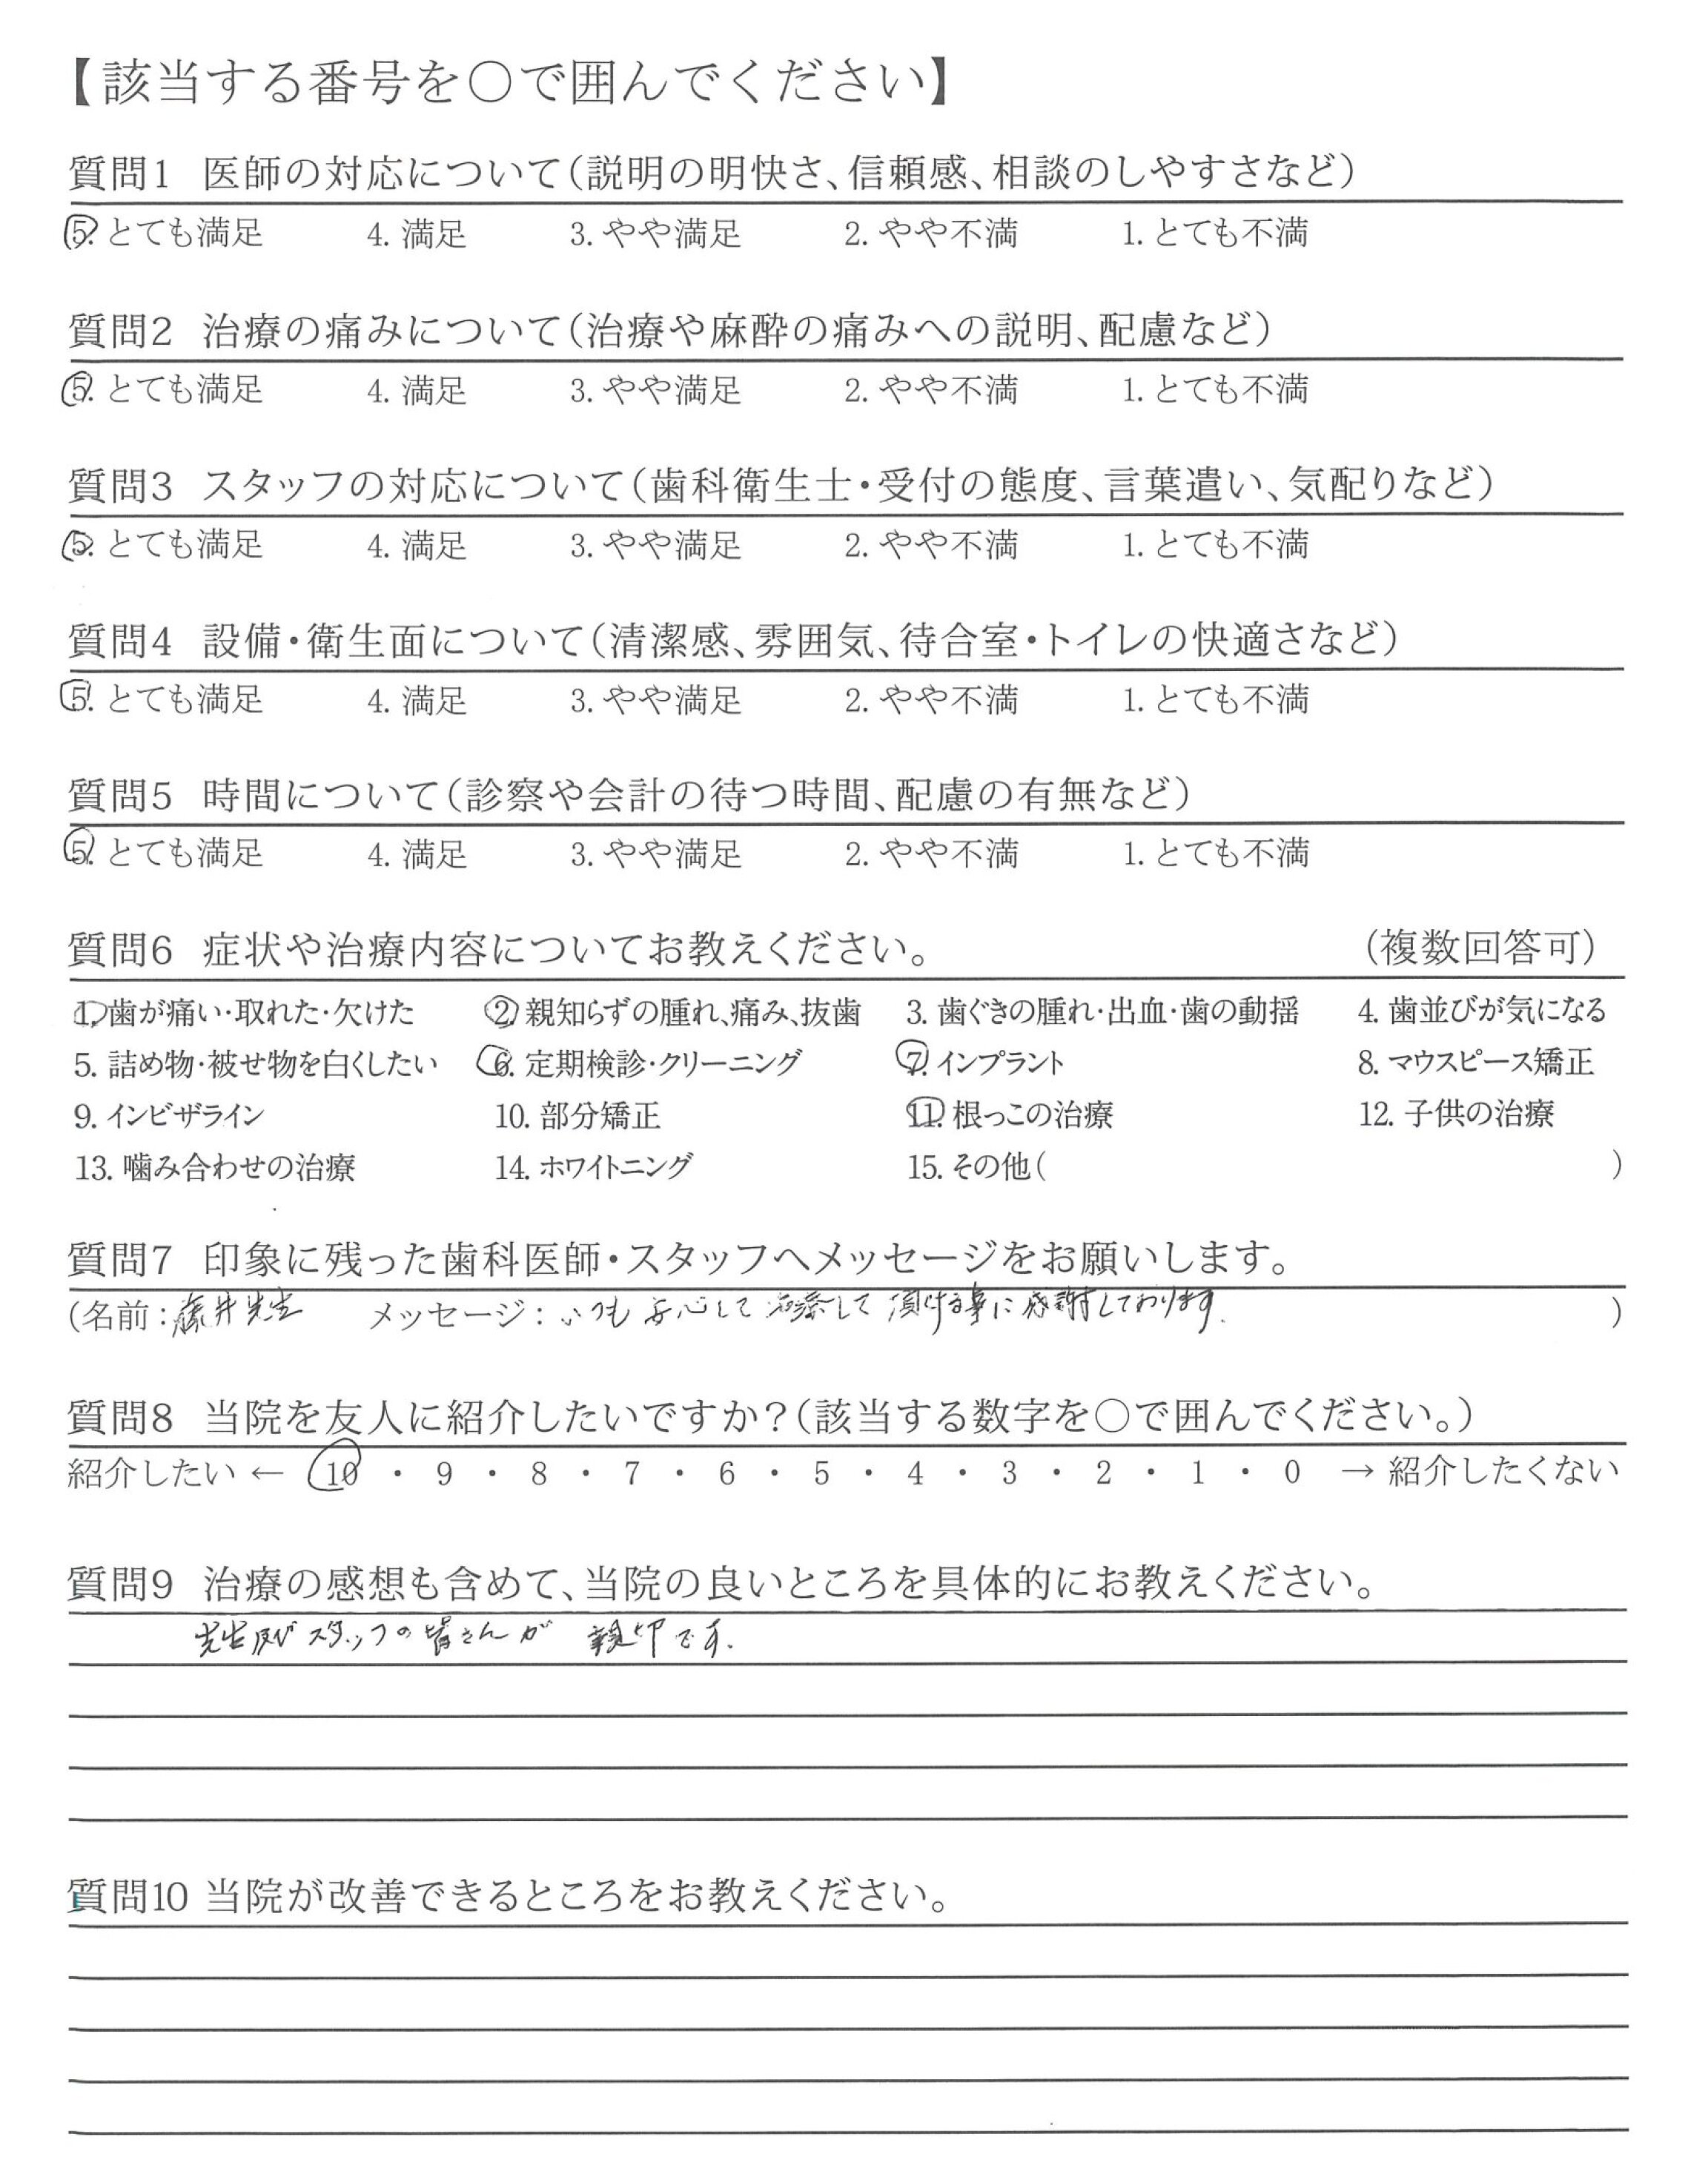 【該当する番号を○で囲んでください】
質問1 医師の対応について(説明の明快さ、信頼感、相談のしやすさなど)
5. とても満足 4. 満足 3. やや満足 2. やや不満 1. とても不満
質問2 治療の痛みについて(治療や麻酔の痛みへの説明、配慮など)
5. とても満足 4. 満足 3. やや満足 2. やや不満 1. とても不満
質問3 スタッフの対応について(歯科衛生士・受付の態度、言葉遣い、気配りなど)
5. とても満足 4. 満足 3. やや満足 2. やや不満 1. とても不満
質問4 設備・衛生面について(清潔感、雰囲気、待合室・トイレの快適さなど)
5. とても満足 4. 満足 3. やや満足 2. やや不満 1. とても不満
質問5 時間について(診察や会計の待つ時間、配慮の有無など)
5. とても満足 4. 満足 3. やや満足 2. やや不満 1. とても不満
質問6 症状や治療内容についてお教えください。 (複数回答可)
1. 歯が痛い・取れた・欠けた 2. 親知らずの腫れ、痛み、抜歯 3. 歯ぐきの腫れ・出血・歯の動揺 4. 歯並びが気になる
5. 詰め物・被せ物を白くしたい 6. 定期検診・クリーニング 7. インプラント 8. マウスピース矯正
9. インビザライン 10. 部分矯正 11. 根っこの治療 12. 子供の治療
13. 噛み合わせの治療 14. ホワイトニング 15. その他( )
質問7 印象に残った歯科医師・スタッフへメッセージをお願いします。
(名前：藤井先生 メッセージ：いつも安心して治療して頂ける事に感謝しております。 )
質問8 当院を友人に紹介したいですか?(該当する数字を○で囲んでください。)
紹介したい ← 10 ・ 9 ・ 8 ・ 7 ・ 6 ・ 5 ・ 4 ・ 3 ・ 2 ・ 1 ・ 0 → 紹介したくない
質問9 治療の感想も含めて、当院の良いところを具体的にお教えください。
先生及びスタッフの皆さんが 親切です。
質問10 当院が改善できるところをお教えください。